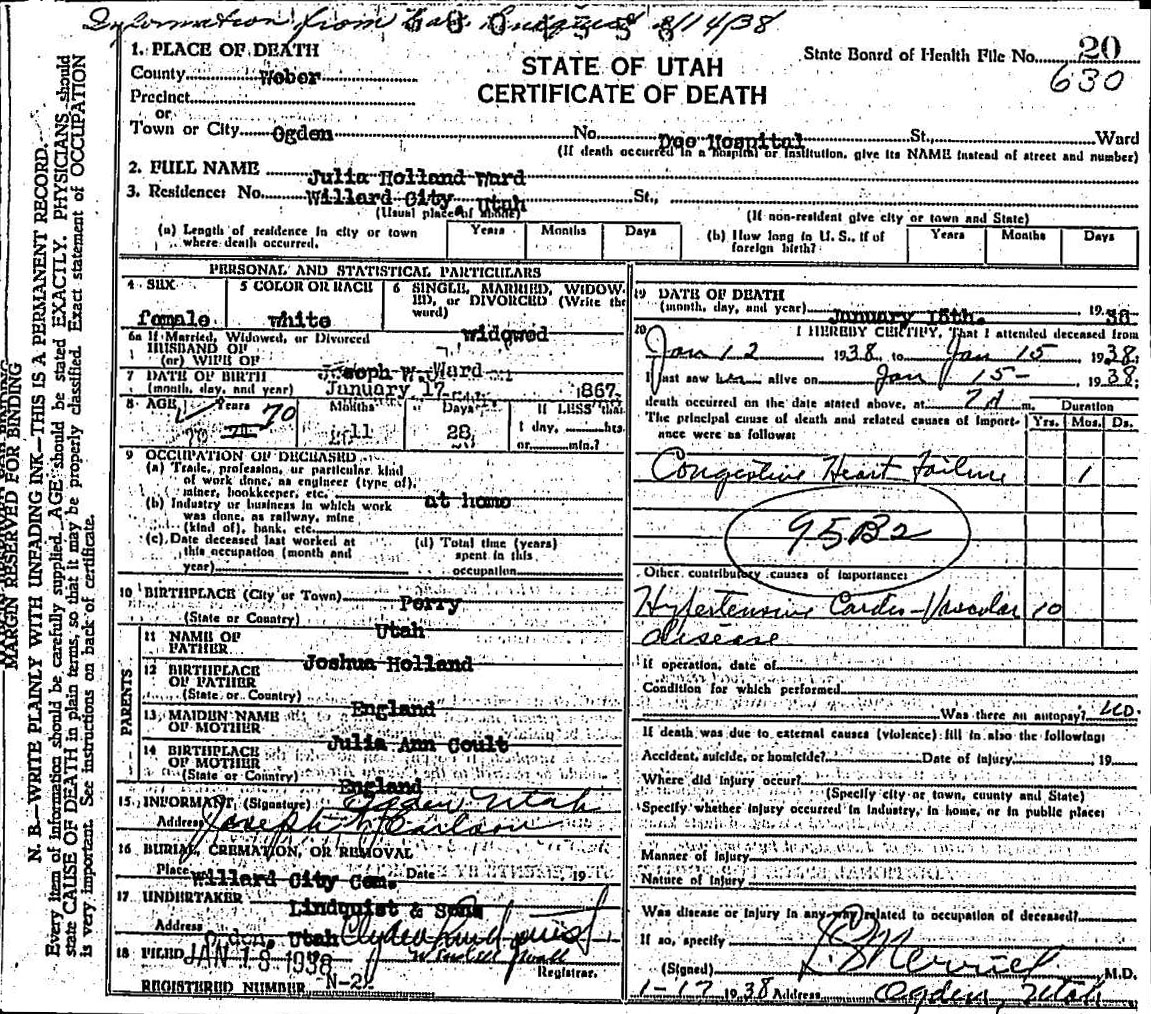 Information from
/14/38
1. PLACE OF DEATH
County Weber
Precinct
or
Town or City Ogden No. Dee Hospital St., Ward
(If death occurred in a hospital or institution, give its NAME instead of street and number)
STATE OF UTAH
CERTIFICATE OF DEATH
State Board of Health File No. 20
630
2. FULL NAME Julia Holland Ward
3. Residence: No. Willard City, Utah St.,
(Usual place of abode)
(If non-resident give city or town and State)
(a) Length of residence in city or town where death occurred. Years Months Days
(b) How long in U. S., if of foreign birth? Years Months Days
PERSONAL AND STATISTICAL PARTICULARS
4 SEX female
5 COLOR OR RACE white
6 SINGLE, MARRIED, WIDOWED, or DIVORCED (Write the word) widowed
6a If Married, Widowed, or Divorced
HUSBAND OF
(or) WIFE OF Joseph W. Ward
7 DATE OF BIRTH
(month, day, and year) January 17 1867
8 AGE Years 70 70 Months 11 Days 28 If LESS than
1 day, hrs.
or min.?
9 OCCUPATION OF DECEASED
(a) Trade, profession, or particular kind
of work done, as engineer (type of),
miner, bookkeeper, etc. at home
(b) Industry or business in which work
was done, as railway, mine
(kind of), bank, etc.
(c) Date deceased last worked at
this occupation (month and
year)
(d) Total time (years)
spent in this
occupation
10 BIRTHPLACE (City or Town) Perry
(State or Country) Utah
PARENTS
11 NAME OF
FATHER Joshua Holland
12 BIRTHPLACE
OF FATHER
(State or Country) England
13 MAIDEN NAME
OF MOTHER Julia Ann Coult
14 BIRTHPLACE
OF MOTHER
(State or Country) England
15 INFORMANT, (Signature) Ogden Utah
Address Joseph W Carlson
16 BURIAL, CREMATION, OR REMOVAL
Place Willard City Cem. Date 19
17 UNDERTAKER Lindquist & Sons
Address Ogden, Utah Clyde Lindquist
18 FILED JAN 18 1938
Registrar.
REGISTERED NUMBER N-22
19 DATE OF DEATH
(month, day, and year) January 15th. 1938
20 I HEREBY CERTIFY, That I attended deceased from
Jan 12 1938 to Jan 15 1938;
I last saw her alive on Jan 15- 1938;
death occurred on the date stated above, at 7 A m. Duration
The principal cause of death and related causes of importance were as follows: Yrs. Mos. Ds.
Congestive Heart Failure 1
95B2
Other contributory causes of importance:
Hypertensive Cardio-Vascular 10
disease
If operation, date of
Condition for which performed
Was there an autopsy? no.
If death was due to external causes (violence) fill in also the following:
Accident, suicide, or homicide? Date of injury 19
Where did injury occur?
(Specify city or town, county and State)
Specify whether injury occurred in industry, in home, or in public place:
Manner of injury
Nature of injury
Was disease or injury in any way related to occupation of deceased?
If so, specify
(Signed) Merrill M.D.
1-17 1938 Address Ogden, Utah
MARGIN RESERVED FOR BINDING
N. B.—WRITE PLAINLY WITH UNFADING INK—THIS IS A PERMANENT RECORD.
Every item of information should be carefully supplied. AGE should be stated EXACTLY. PHYSICIANS should
state CAUSE OF DEATH in plain terms, so that it may be properly classified. Exact statement of OCCUPATION
is very important. See instructions on back of certificate.